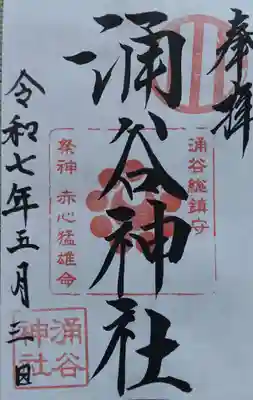 奉拝
涌谷総鎮守
涌谷神社
祭神 赤心猛雄命
令和七年五月三日
涌谷
神社